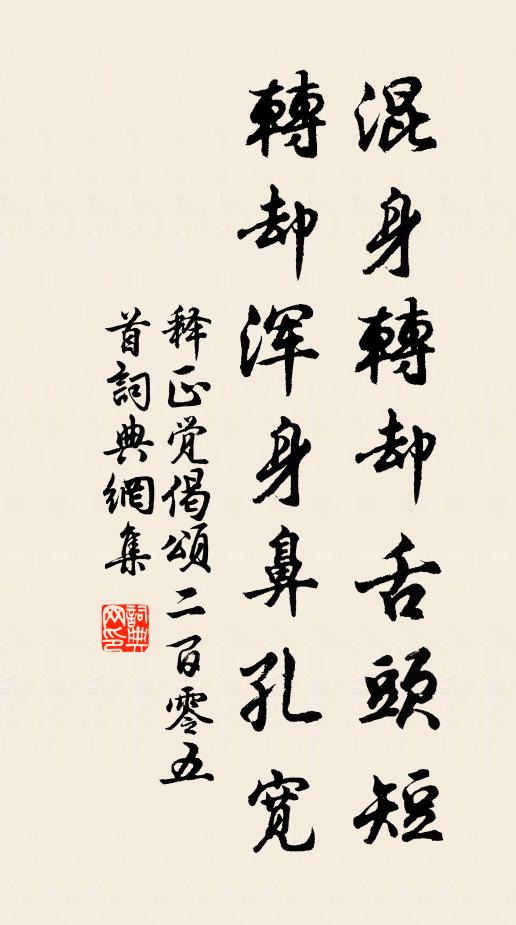 混身轉却舌頭短
轉却浑身鼻孔宽
释正觉偈頌二百零五
首詞典網集
詞典网印